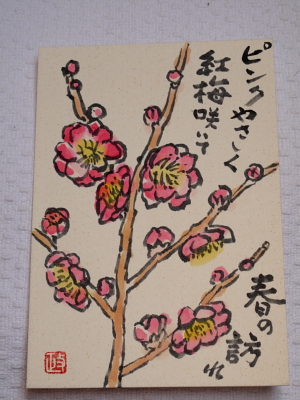 ピンクやさしく
紅梅咲いて
春の訪れ